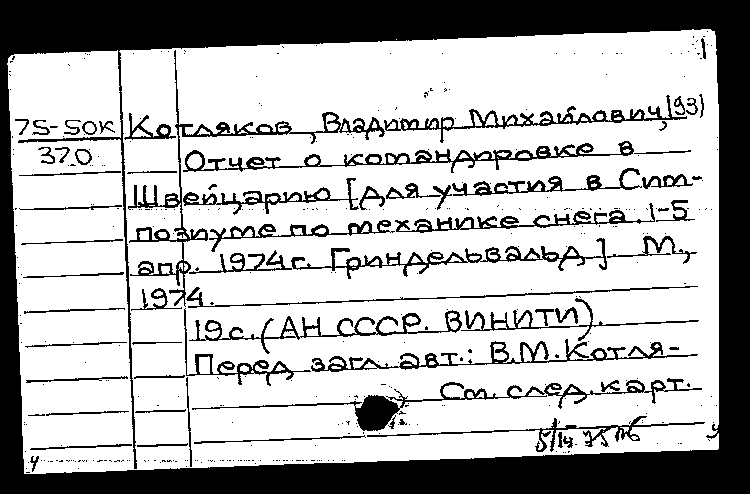 1
75-50К Котляков, Владимир Михайлович, 1931
370 Отчет о командировке в
Швейцарию [для участия в Сим-
позиуме по механике снега. 1-5
апр. 1974г. Гриндельвальд]. М.,
1974.
19с. (АН СССР. ВИНИТИ).
Перед загл. авт.: В.М. Котля-
См. след. карт.